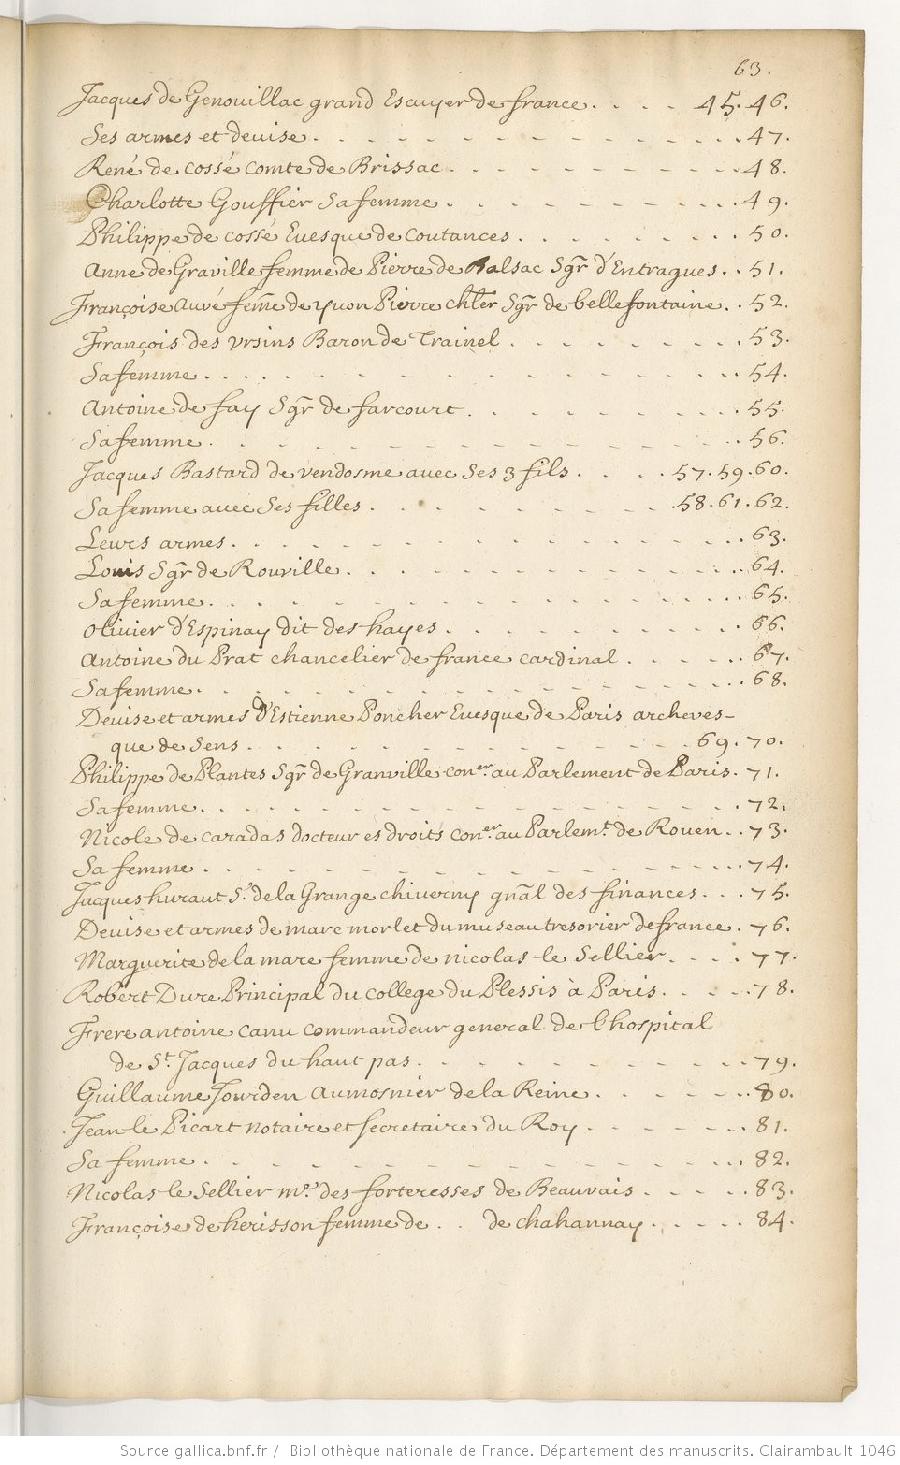 63.
Jacques de Genouillac grand Escuyer de france. . . . . 45. 46.
Ses armes et deuise. . . . . 47.
René de cossé comte de Brissac. . . . . 48.
Charlotte Gouffier Sa femme. . . . . 49.
Philippe de cossé Euesque de Coutances. . . . . 50.
Anne de Graville femme de Pierre de Balsac Sgr d'Entragues. . 51.
Françoise auvé feme de yuon Pierre chlr Sgr de bellefontaine. . 52.
François des Vrsins Baron de Trainel. . . . . 53.
Sa femme. . . . . 54.
Antoine de fay Sgr de farcourt. . . . . 55.
Sa femme. . . . . 56.
Jacques Bastard de vendosme avec Ses 3 fils. . . . . 57. 59. 60.
Sa femme avec Ses filles. . . . . 58. 61. 62.
Leurs armes. . . . . 63.
Louis Sgr de Rouville. . . . . 64.
Sa femme. . . . . 65.
Olivier d'Espinay dit des hayes. . . . . 66.
Antoine du Prat chancelier de france cardinal. . . . . 67.
Sa femme. . . . . 68.
Deuise et armes d'Estienne Poncher Euesque de Paris archeves-
que de Sens. . . . . 69. 70.
Philippe de Plantes Sgr de Granville con.er au Parlement de Paris. 71.
Sa femme. . . . . 72.
Nicole de caradas docteur es droits con.er au Parlem.t de Rouen. . 73.
Sa femme. . . . . 74.
Jacques huraut S.r de la Grange chiuerny gnal des finances. . . 75.
Deuise et armes de marc morlet du museau tresorier de france. 76.
Marguerite de la mare femme de nicolas le Sellier. . . . 77.
Robert Dure Principal du college du Plessis à Paris. . . . 78.
Frere antoine canu commandeur general de l'hospital
de S.t Jacques du haut pas. . . . . 79.
Guillaume Jourden Aumosnier de la Reine. . . . . 80.
Jean le Picart notaire et secretaire du Roy. . . . . 81.
Sa femme. . . . . 82.
Nicolas le Sellier m.e des forteresses de Beauvais. . . . . 83.
Françoise de herisson femme de . . de chahannay. . . . . 84.
Source gallica.bnf.fr / Bibliothèque nationale de France. Département des manuscrits. Clairambault 1046